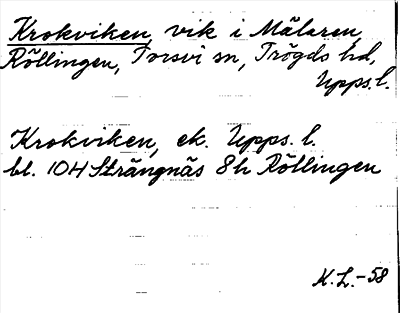 Krokviken, vik i Mälaren,
Röllingen, Torsvi sn, Trögds hd,
Upps. l.
Krokviken, ek. Upps. l.
bl. 10H Strängnäs 8h Röllingen
K.L.-58